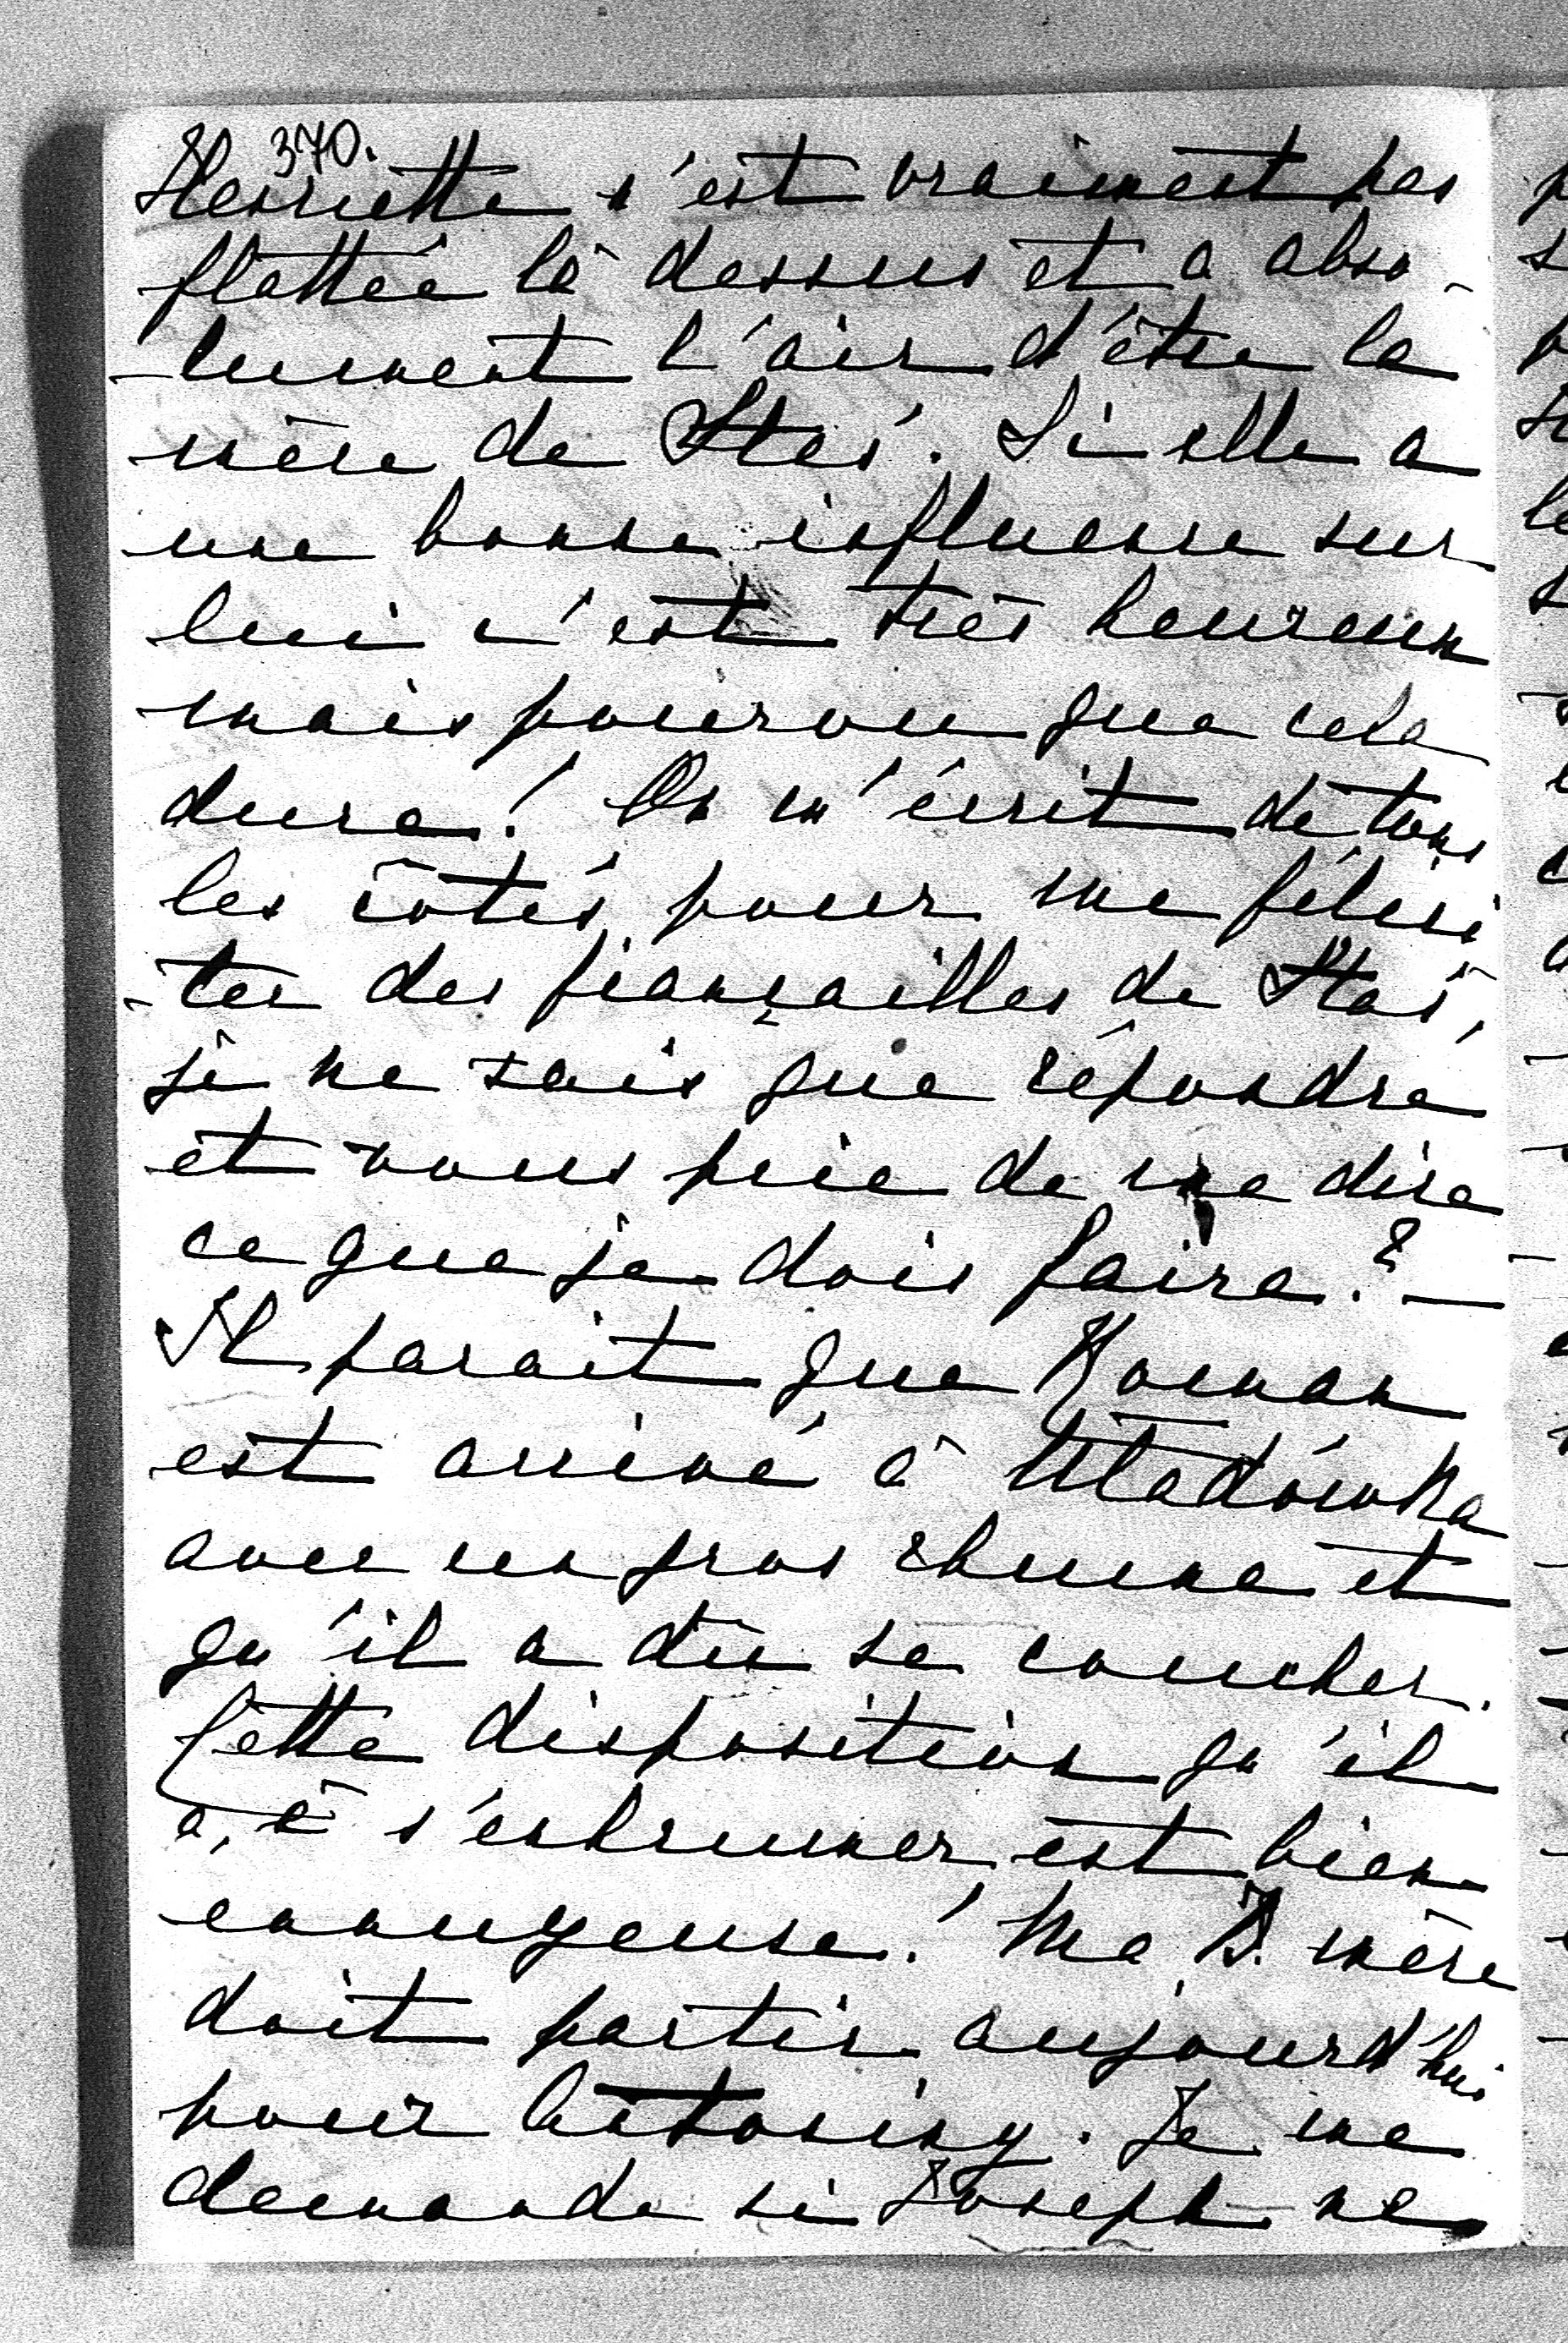 370.
Henriette n'est vraiment pas
flattée là dessus et a abso-
-lument l'air d'être la
mère de Staś. Si elle a
une bonne influence sur
lui c'est très heureux
mais pourvu que cela
dure! On m'écrit de tous
les côtés pour me félici
-ter des fiançailles de Staś,
je ne sais que répondre
et vous prie de me dire
ce que je dois faire? —
Il parait que Roman
est arrivé à Uładówka
avec un gros rhume et
qu'il a dû se coucher.
Cette disposition qu'il
a, à s'enrhumer est bien
ennuyeuse! Ma B. mère
doit partir aujourd'hui
pour . Je me
demande si Joseph ne